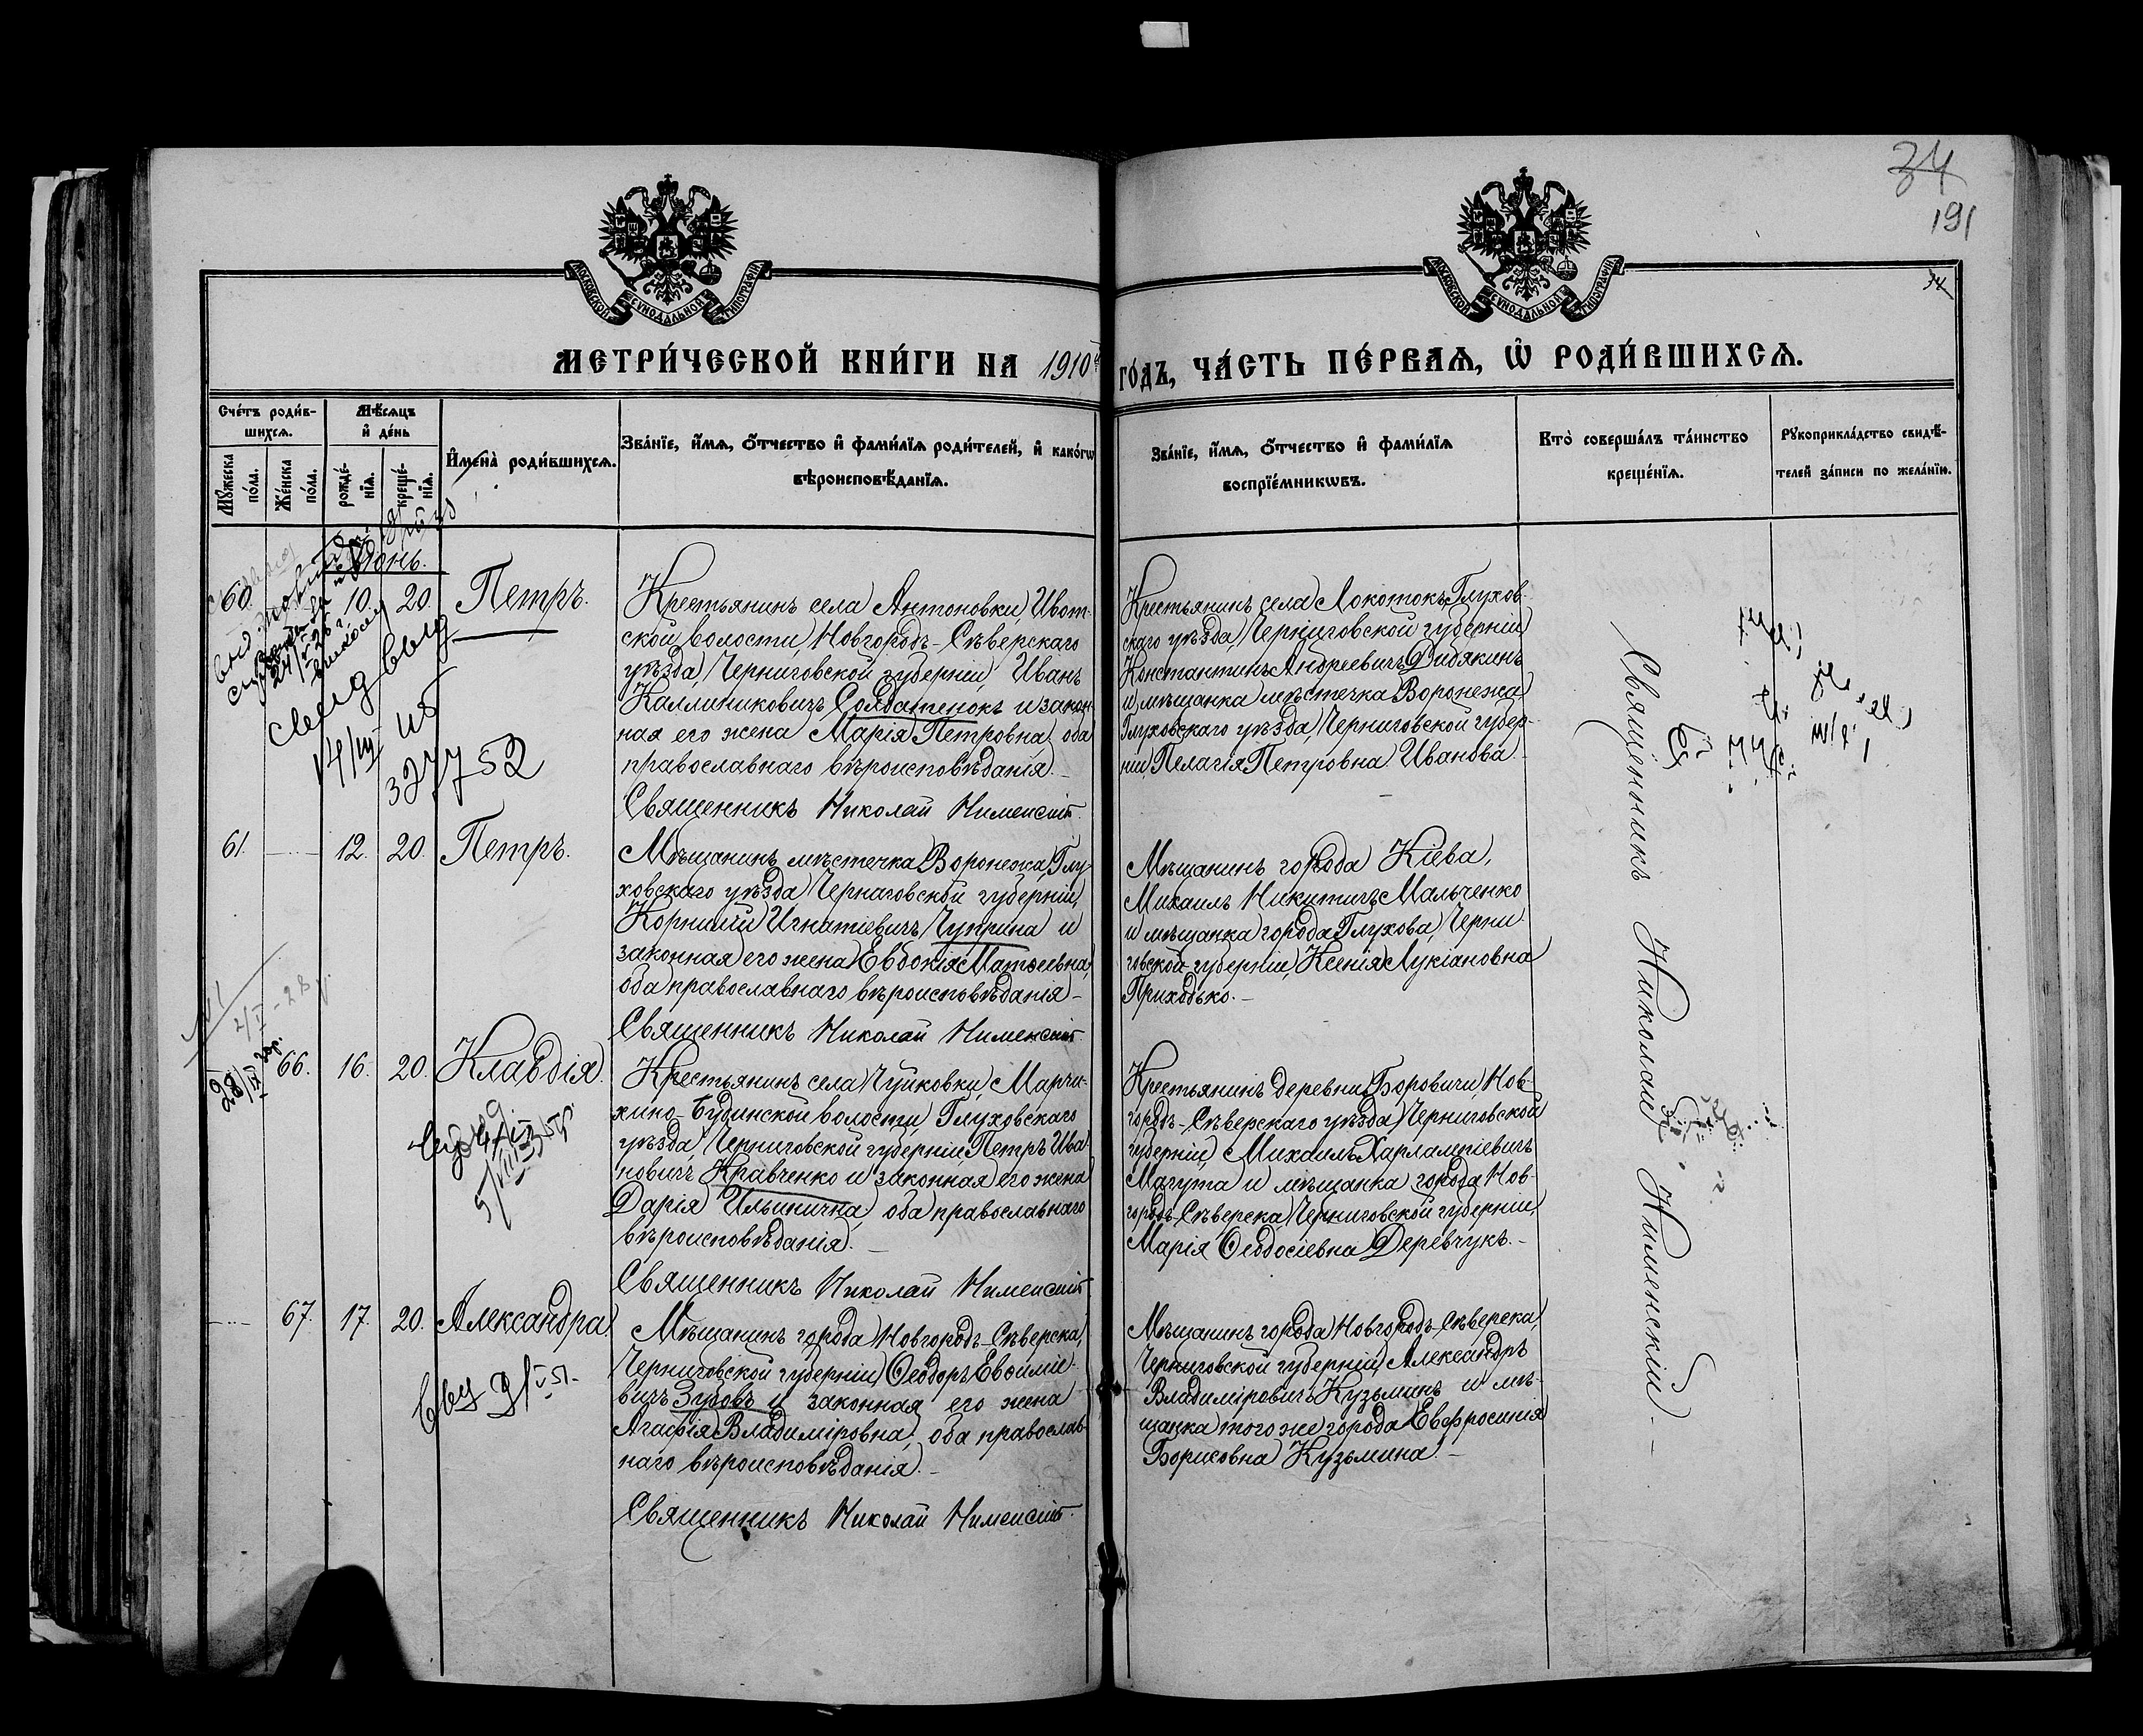 34
191
34
МОСКОВСКОЙ СѴНОДАЛЬНОЙ ТИПОГРАФІИ
МОСКОВСКОЙ СѴНОДАЛЬНОЙ ТИПОГРАФІИ
МЕТРИ́ЧЕСКОЙ КНИ́ГИ НА 1910й ГО́ДЪ, ЧА́СТЬ ПЕ́РВАѦ, Ѡ҆ РОДИ́ВШИХСѦ.
Сче́тъ роди́в-
шихсѧ.
Мѣ́сѧцъ
и҆ де́нь
Мꙋ́жеска по́ла.
Же́нска по́ла.
рожде́-нїѧ.
креще́-нїѧ.
И҆мена̀ роди́вшихсѧ.
Зва́нїе, и҆́мѧ, ѻ҆́тчество и҆ фами́лїѧ роди́телей, и҆ како́гѡ
вѣроисповѣ́данїѧ.
Зва́нїе, и҆́мѧ, ѻ҆́тчество и҆ фами́лїѧ
воспрїе́мникѡвъ.
Кто̀ соверша́лъ та́инство
креще́нїѧ.
Рꙋкоприкла́дство свидѣ́-
телей за́писи по жела́нїю.
Іюнь.
60. 10. 20. Петръ.
Крестьянинъ села Антоновки, Ивот-
ской волости, Новгородъ-Сѣверскаго
уѣзда, Черниговской губерніи, Иванъ
Каллиниковичъ Солдатенокъ и закон-
ная его жена Марія Петровна, оба
православнаго вѣроисповѣданія.-
Священникъ Николай Нименскій.
Крестьянинъ села Локотокъ, Глухов-
скаго уѣзда, Черниговской губерніи
Константинъ Андреевичъ Дибякинъ
и мѣщанка мѣстечка Воронежа
Глуховскаго уѣзда, Черниговской губер-
ніи, Пелагія Петровна Иванова.-
14/VII
327752
61. 12. 20. Петръ.
Мѣщанинъ мѣстечка Воронежа, Глу-
ховскаго уѣзда, Черниговской губерніи,
Корнилій Игнатіевичъ Чуприна и
законная его жена Евдокія Матѳеевна,
оба православнаго вѣроисповѣданія-
Священникъ Николай Нименскій.
Мѣщанинъ города Кіева,
Михаилъ Никитичъ Мальченко
и мѣщанка города Глухова, Черни-
говской губерніи, Ксенія Лукіановна
Приходько.-
66. 16. 20. Клавдія.
Крестьянинъ села Чуйковки, Марчи-
хино-Будинской волости, Глуховскаго
уѣзда, Черниговской губерніи, Петръ Ива-
новичъ Кравченко и законная его жена
Дарія Ильинична, оба православнаго
вѣроисповѣданія.-
Священникъ Николай Нименскій
Крестьянинъ деревни Боровичи, Нов-
городъ-Сѣверскаго уѣзда, Черниговской
губерніи, Михаилъ Харлампіевичъ
Магута и мѣщанка города Нов-
городъ-Сѣверска, Черниговской губерніи,
Марія Ѳеодосіевна Деревчукъ.-
67. 17. 20. Александра.
Мѣщанинъ города Новгородъ-Сѣверска,
Черниговской губерніи, Ѳеодоръ Евѳиміе-
вичъ Зубовъ и законная его жена
Агафія Владиміровна, оба православ-
наго вѣроисповѣданія.-
Священникъ Николай Нименскій.
Мѣщанинъ города Новгородъ-Сѣверска,
Черниговской губерніи, Александръ
Владиміровичъ Кузьминъ и мѣ-
щанка того же города Евфросинія
Борисовна Кузьмина.-
Священникъ Николай Нименскій.-